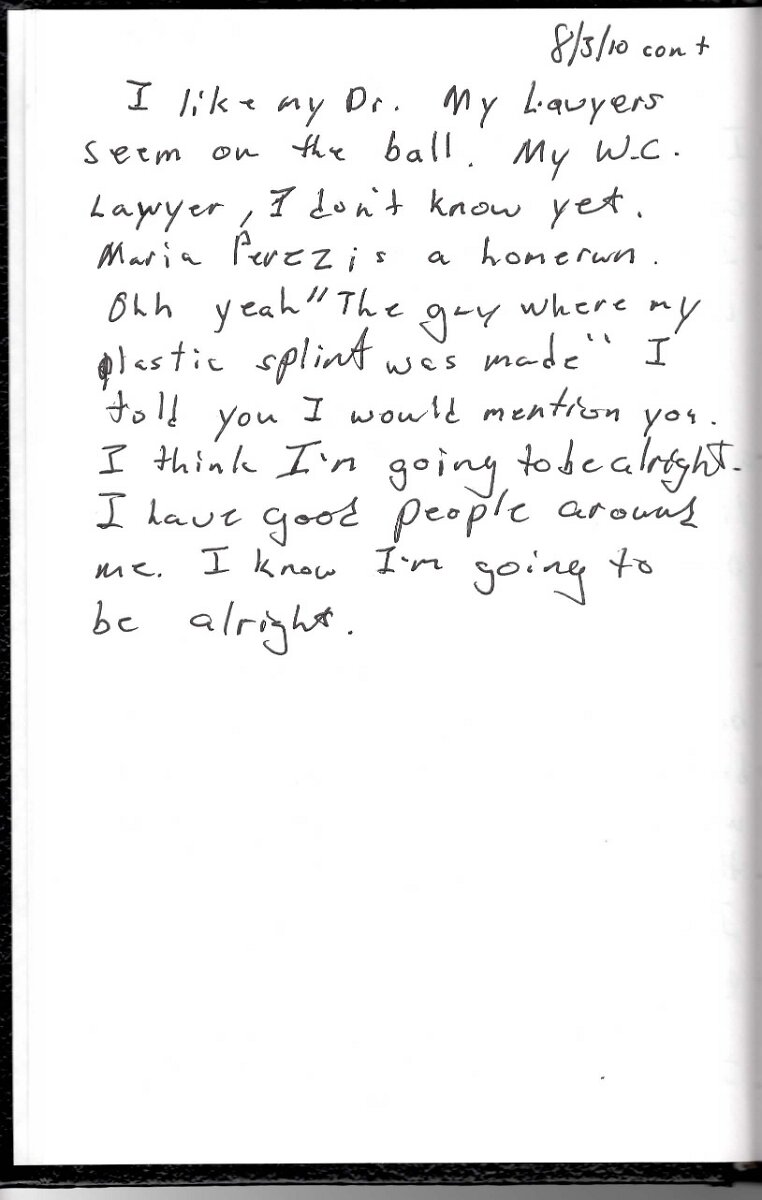 8/3/10 con t
I like my Dr. My Lawyers
seem on the ball. My W.C.
Lawyer, I don't know yet.
Maria Perez is a homerun.
Ohh yeah "The guy where my
plastic splint was made" I
told you I would mention you.
I think I'm going to be alright.
I have good people around
me. I know I'm going to
be alright.